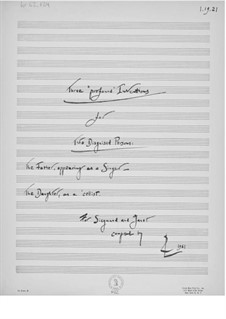 Three "profane" Inventions
for
Two Disguised Persons:
The Father, appearing as a Singer —
The Daughter, as a 'cellist.
For Siegmund and Janet
composed by